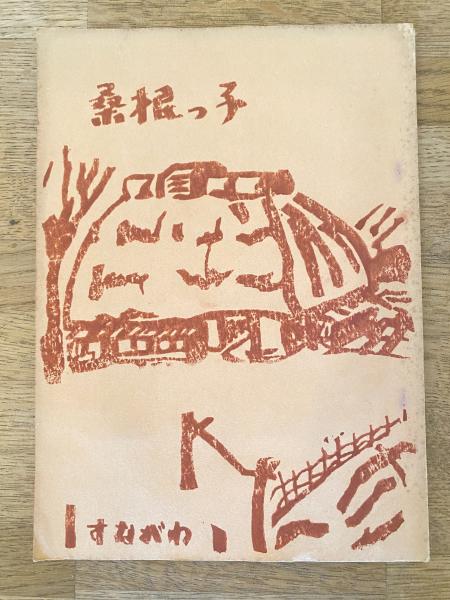 桑根っ子
すながわ